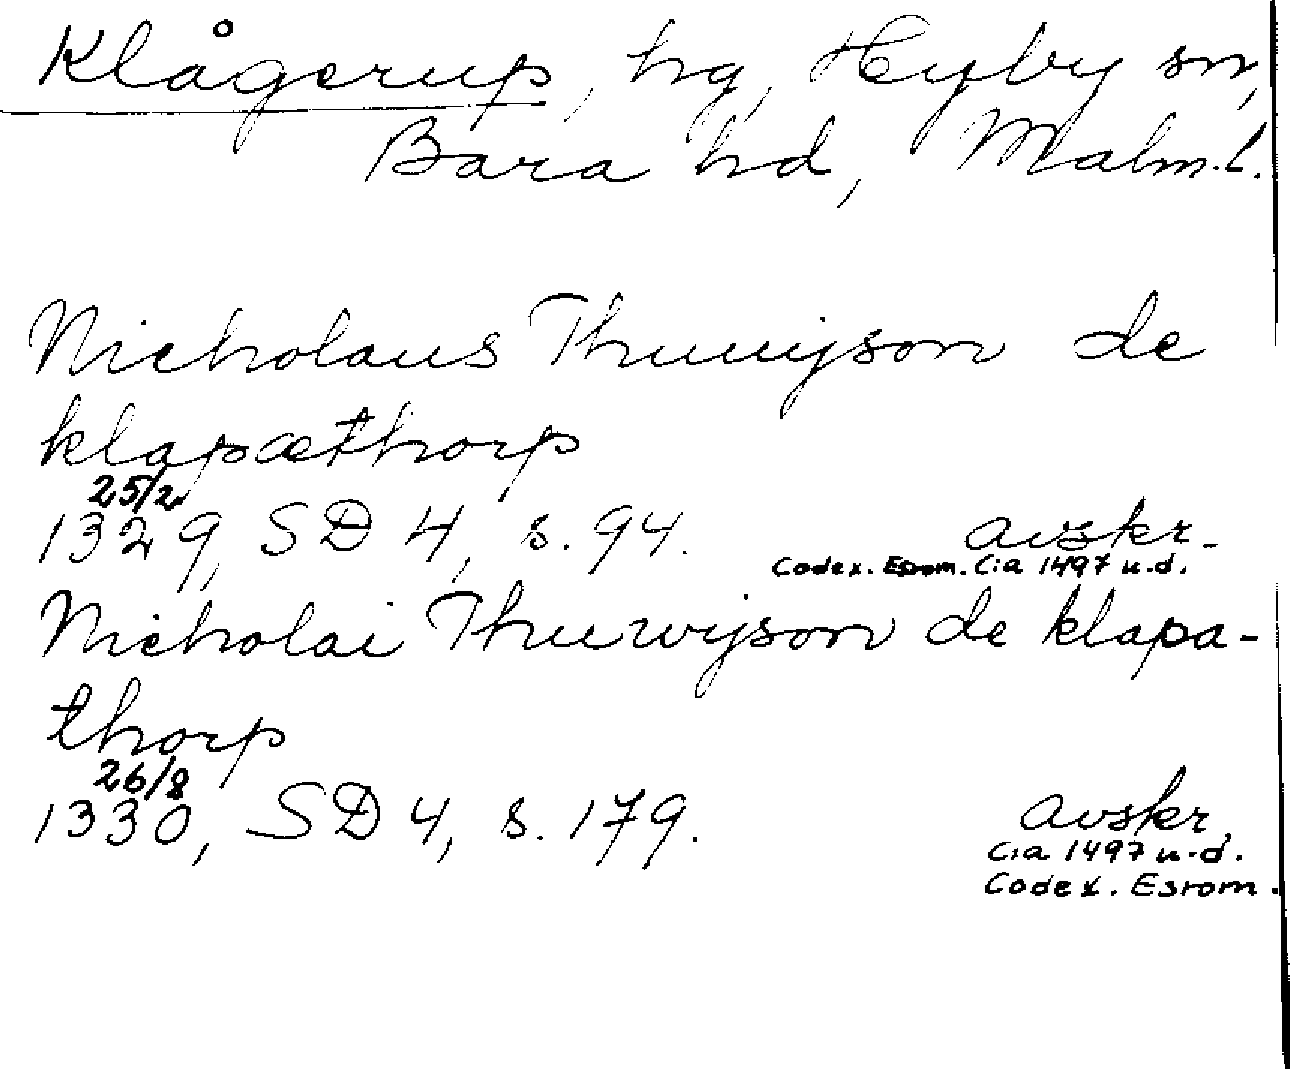 Klågerup, hg, Hyby sn,
Bara hd, Malm.l.
Nicholaus Thuuijson de
klapæthorp
25/2
1329, SD 4, s. 94. avskr.
Codex. Esrom. Cia 1497 u.d.
Nicholai Thuwijson de klapa-
thorp
26/8
1330, SD 4, s. 179. avskr.
Cia 1497 u.d.
Codex. Esrom.